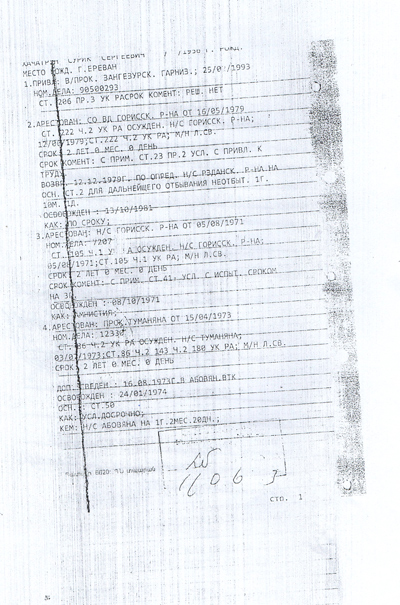 СУРИК СЕРГЕЕВИЧ
МЕСТО РОЖД. Г.ЕРЕВАН
1.ПРИВЛ: В/ПРОК. ЗАНГЕЗУРСК. ГАРНИЗ.; 25/0 /1993
НОМ.ДЕЛА: 90500293
СТ. 206 ПР.3 УК РАСРОК КОМЕНТ: РЕШ. НЕТ
2.АРЕСТОВАН: СО ВД ГОРИССК. Р-НА ОТ 16/05/1979
СТ.222 Ч.2 УК РА ОСУЖДЕН. Н/С ГОРИССК. Р-НА;
12/06/1979;СТ.222 Ч.2 УК РА; М/Н Л.СВ.
СРОК 2 ЛЕТ 0 МЕС. 0 ДЕНЬ
СРОК КОМЕНТ: С ПРИМ. СТ.23 ПР.2 УСЛ. С ПРИВЛ. К
ТРУДУ
ВОЗВР. 12.12.1979Г. ПО ОПРЕД. Н/С РЗДАНСК. Р-НА НА
ОСН. СТ.2 ДЛЯ ДАЛЬНЕЙШЕГО ОТБЫВАНИЯ НЕОТБЫТ. 1Г.
ОСВОБОЖДЕН : 13/10/1981
КАК: ПО СРОКУ;
3.АРЕСТОВАН: Н/С ГОРИССК. Р-НА ОТ 05/08/1971
НОМ.ДЕЛА: 7207
СТ.105 Ч.1 УК РА ОСУЖДЕН. Н/С ГОРИССК. Р-НА;
05/08/1971;СТ.105 Ч.1 УК РА; М/Н Л.СВ.
СРОК 2 ЛЕТ 0 МЕС. 0 ДЕНЬ
СРОК КОМЕНТ: С ПРИМ. СТ.41 УСЛ. С ИСПЫТ. СРОКОМ
НА
ОСВОБОЖДЕН : 08/10/1971
КАК: АМНИСТИЯ;
4.АРЕСТОВАН: ПРОК.ТУМАНЯНА ОТ 15/04/1973
НОМ.ДЕЛА: 12330
СТ.86 Ч.2 УК РА ОСУЖДЕН. Н/С ТУМАНЯНА;
03/07/1973;СТ.86 Ч.2 143 Ч.2 180 УК РА; М/Н Л.СВ.
СРОК 2 ЛЕТ 0 МЕС. 0 ДЕНЬ
ДОП.СВЕДЕН.: 16.08.1973Г.В АБОВЯН.ВТК
ОСВОБОЖДЕН : 24/01/1974
ОСН.: СТ.50
КАК: УСЛ.ДОСРОЧНО;
КЕМ: Н/С АБОВЯНА НА 1Г.2МЕС.20ДН.;
СТР. 1